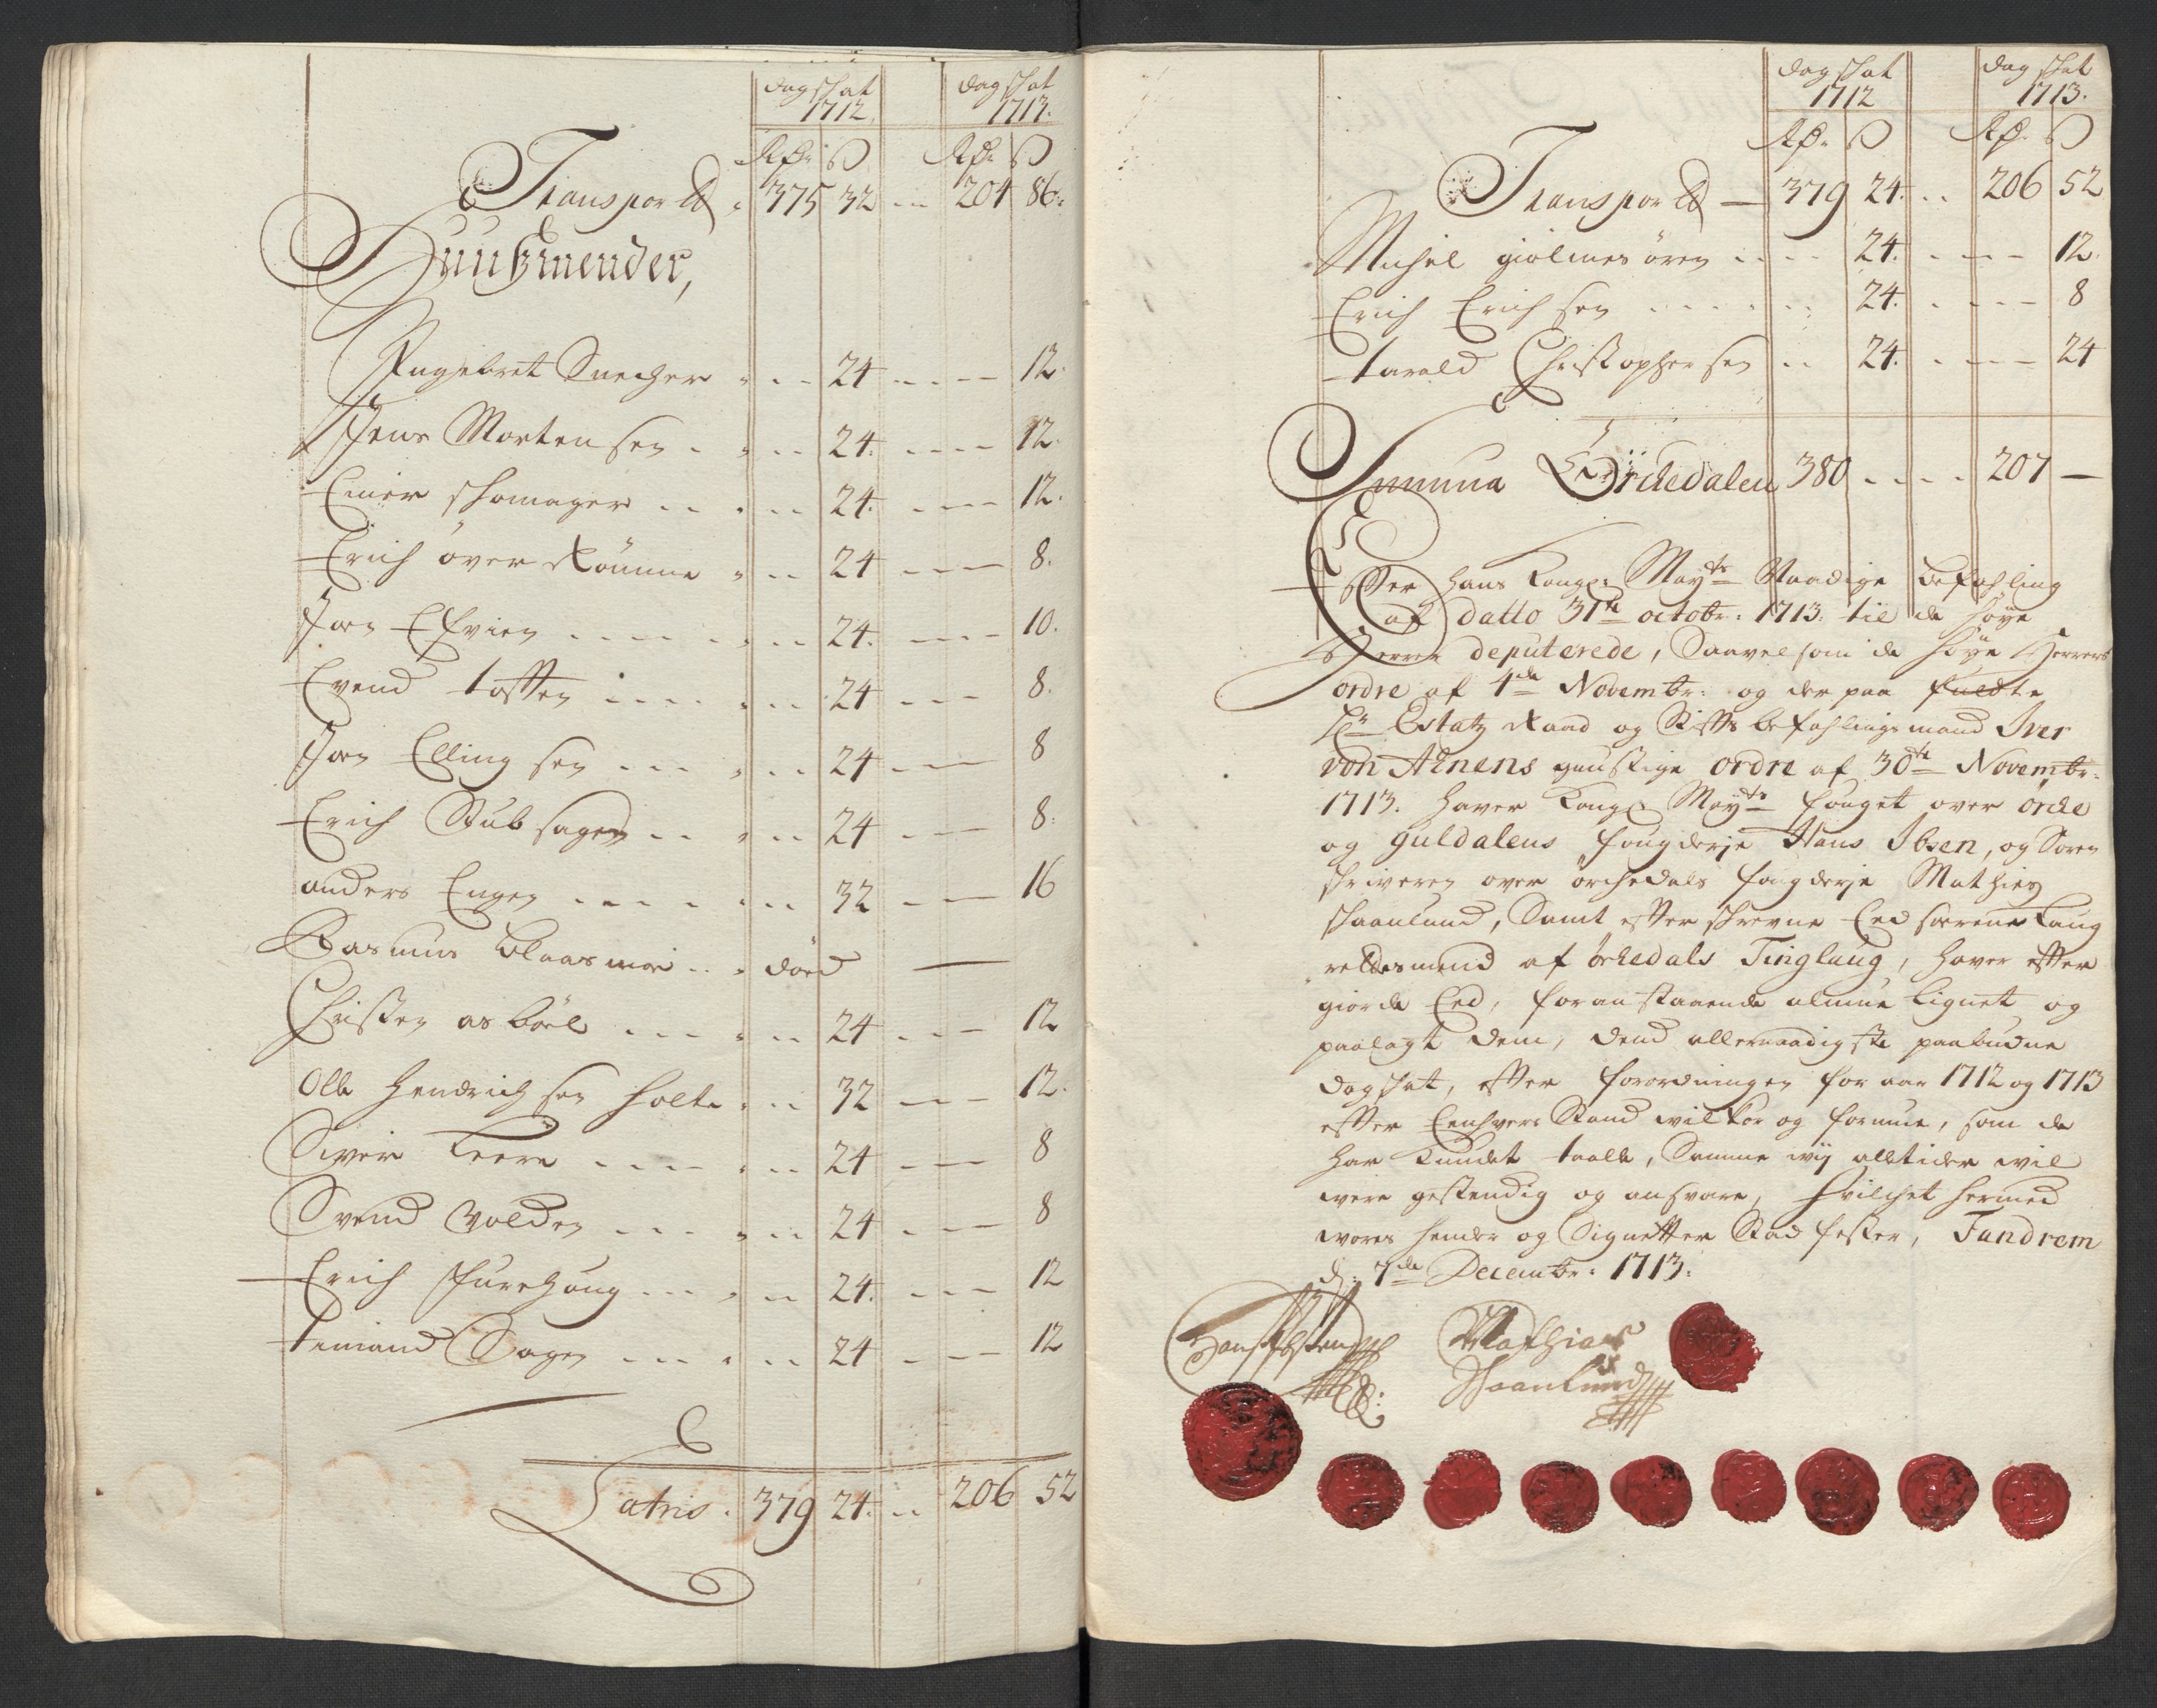 dagskat dagskat
1712. 1713.
Rdr ß Rdr ß
Transporterd 375 32 204 86
Huusmender,
Ingebret Snecher 24 12
Jens Mortensen 24 12
Einer skomager 24 12
Erich över Römme 24 8
Joen Elfvien 24 10
Evend tossen 24 8
Joen Ellingsen 24 8
Erich Stubsagen 24 8
anders Engen 32 16
Rasmus Blaasmoe död —
Christen asböel 24 12
Olle Hendrichsen holte 32 12
Siver Leere 24 8
Svend Volden 24 8
Erich skurehaug 24 12
temand Sagen 24 12
Latris 379 24 206 52
dagskat dagskat
1712 1713.
Rdr ß Rdr ß
Transporterd — 379 24 206 52
Michel giölmesören 24 12
Erich Erichsen 24 8
tarald Christophersen 24 24
Summa Örckedalen 380 207 —
Efter Hans Kongl: Mayts Naadige befahling
af datto 31te octobr: 1713. til de höye
Herrer deputerede, Saavelsom de höye Herrers
ordre af 4de Novembr: og der paa fuldte
Hr Estatz Raad og Stifts befahlingsmand Iver
von Ahnens gunstige ordre af 30te Novembr:
1713. haver Kongl Mayts fouget over örcke
og guldalens fougderje Hans Ibsen, og Soren
skriveren over örchedals fougderje Mathias
skaanlund, Samt efterskrevne Eed sorene Laug
rettesmend af örkedals Tinglaug, haver efter
giorde Eed, foranstaaende almue lignet og
paalagt dem, dend allernaadigste paabudne
dagskat, efter forordningen for aar 1712 og 1713
efter Eenhvers Stand vilkor og formue, som de
har kundet taale, Samme wij alletider wil
were gestendig og ansvare, hvilchet hermed
wores hender og Signetter Stadfester, Fandrem
d: 7de Decembr: 1713:
Hans Ibsen Mathias
Skaanlund